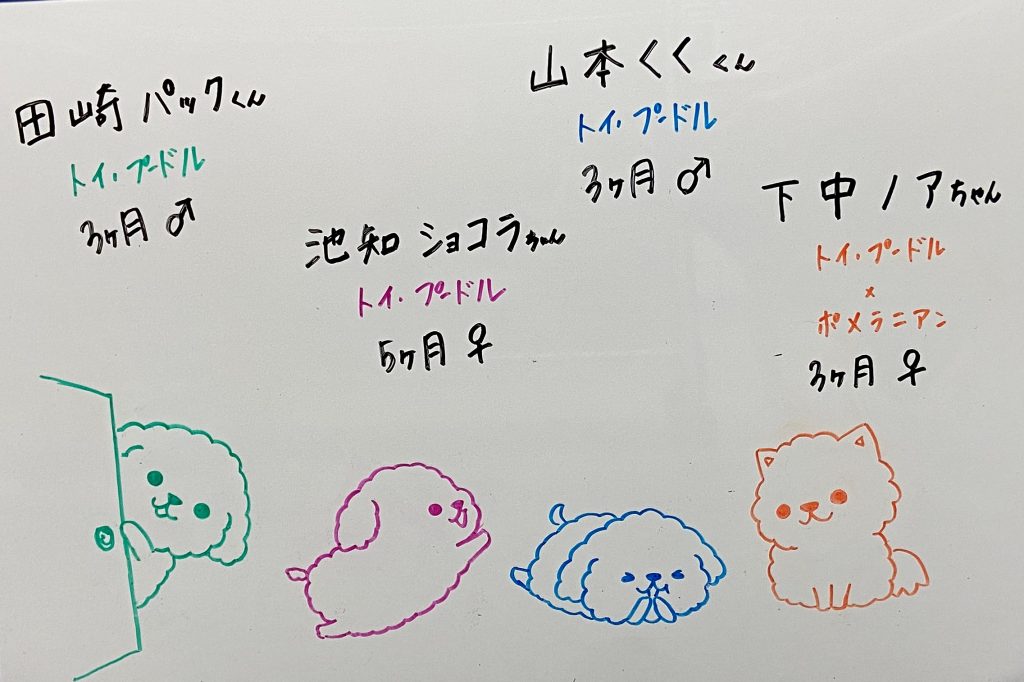 田崎 パックくん
トイ・プードル
3ヶ月 ♂
池知 ショコラちゃん
トイ・プードル
5ヶ月 ♀
山本 くく くん
トイ・プードル
3ヶ月 ♂
下中 ノアちゃん
トイ・プードル
×
ポメラニアン
3ヶ月 ♀